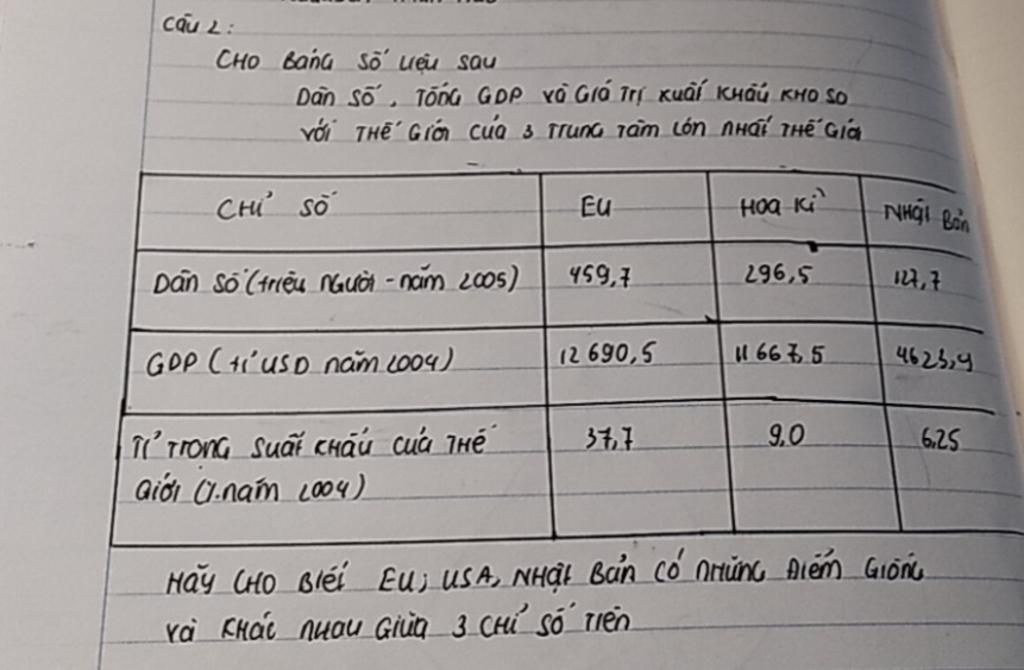 Câu 2:
CHO BảNG Số Liệu sau
Dân số, Tổng GDP và Giá Trị xuất khẩu KHO SO
với Thế Giới của 3 Trung Tâm lớn nhất Thế Giới
Chỉ số EU HOA Kì NHậT Bản
Dân số (triệu người - năm 2005) 459,7 296,5 127,7
GDP (tỉ USD năm 2004) 12 690,5 11 667,5 4623,4
Tỉ Trọng suất khẩu của Thế 37,7 9,0 6,25
Giới (%.năm 2004)
Hãy cho Biết EU; USA, NHật Bản có những điểm Giống
và khác nhau Giữa 3 chỉ số Trên